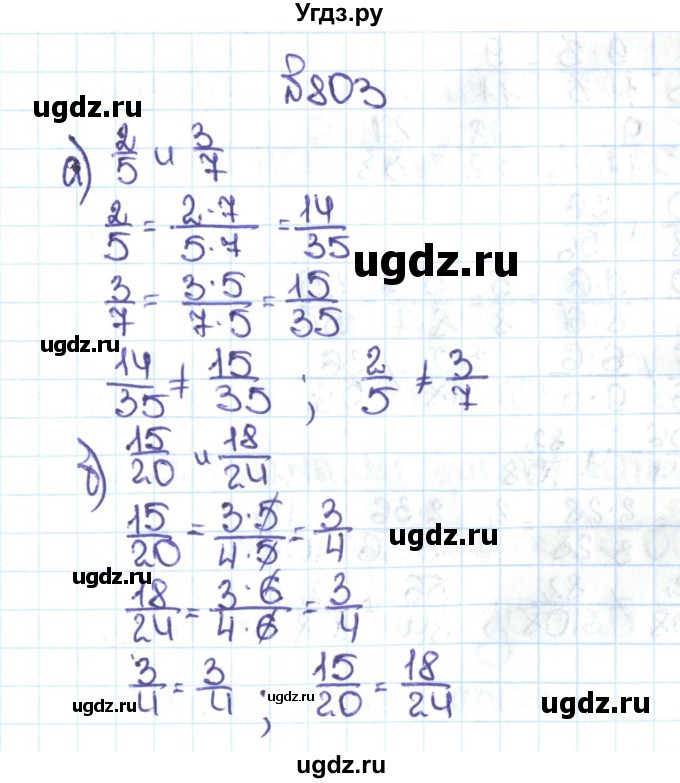 Угдз.ру
№803
ugdz.ru
а) 2/5 и 3/7
2/5 = 2·7/5·7 = 14/35
ugdz.ru
3/7 = 3·5/7·5 = 15/35
ugdz.ru
14/35 ≠ 15/35 ; 2/5 ≠ 3/7
б) 15/20 и 18/24
15/20 = 3·5/4·5 = 3/4
ugdz.ru
ugdz.ru
18/24 = 3·6/4·6 = 3/4
3/4 = 3/4 ; 15/20 = 18/24
ugdz.ru
ugdz.ru
ugdz.ru
ugdz.ru